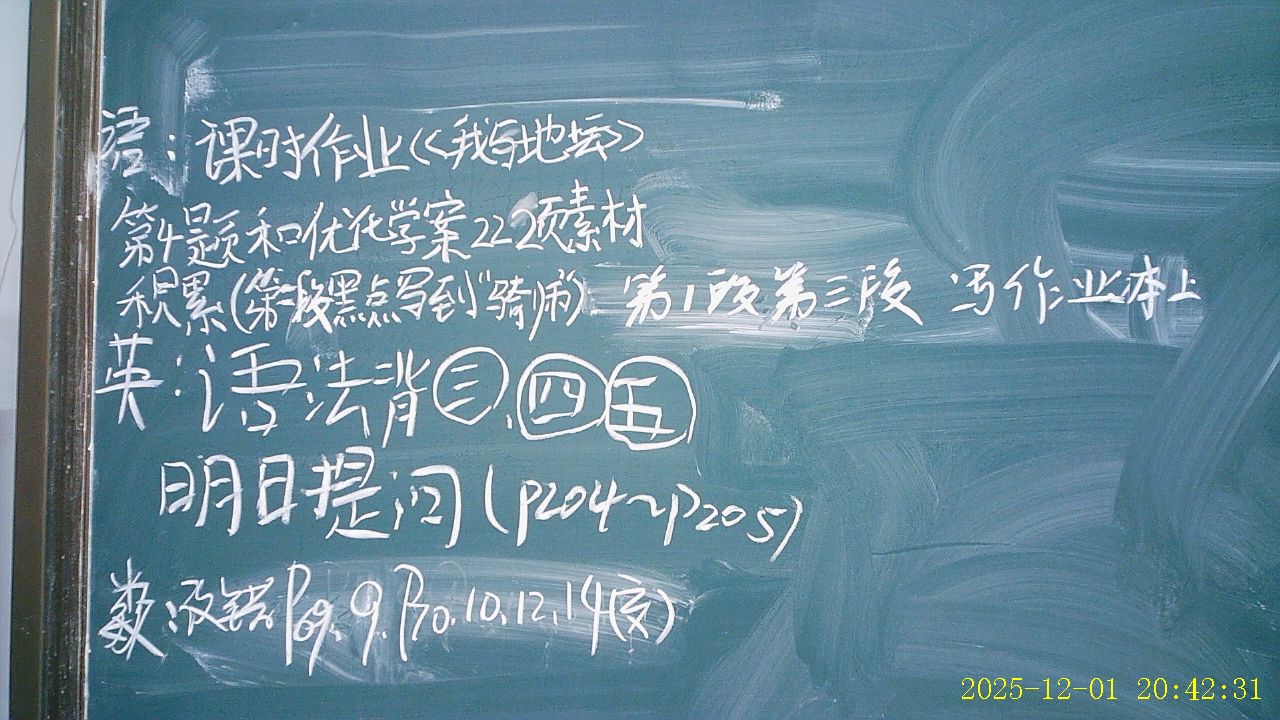 语：课时作业《我与地坛》
第4题和优化学案222页素材
积累(第二段黑点写到"骑师) 第1段第三段 写作业本上
英：语法背㊂、㊃㊄
明日提问(P204~P205)
数：改错P69.9.P70.10.12.14(交)
2025-12-01 20:42:31